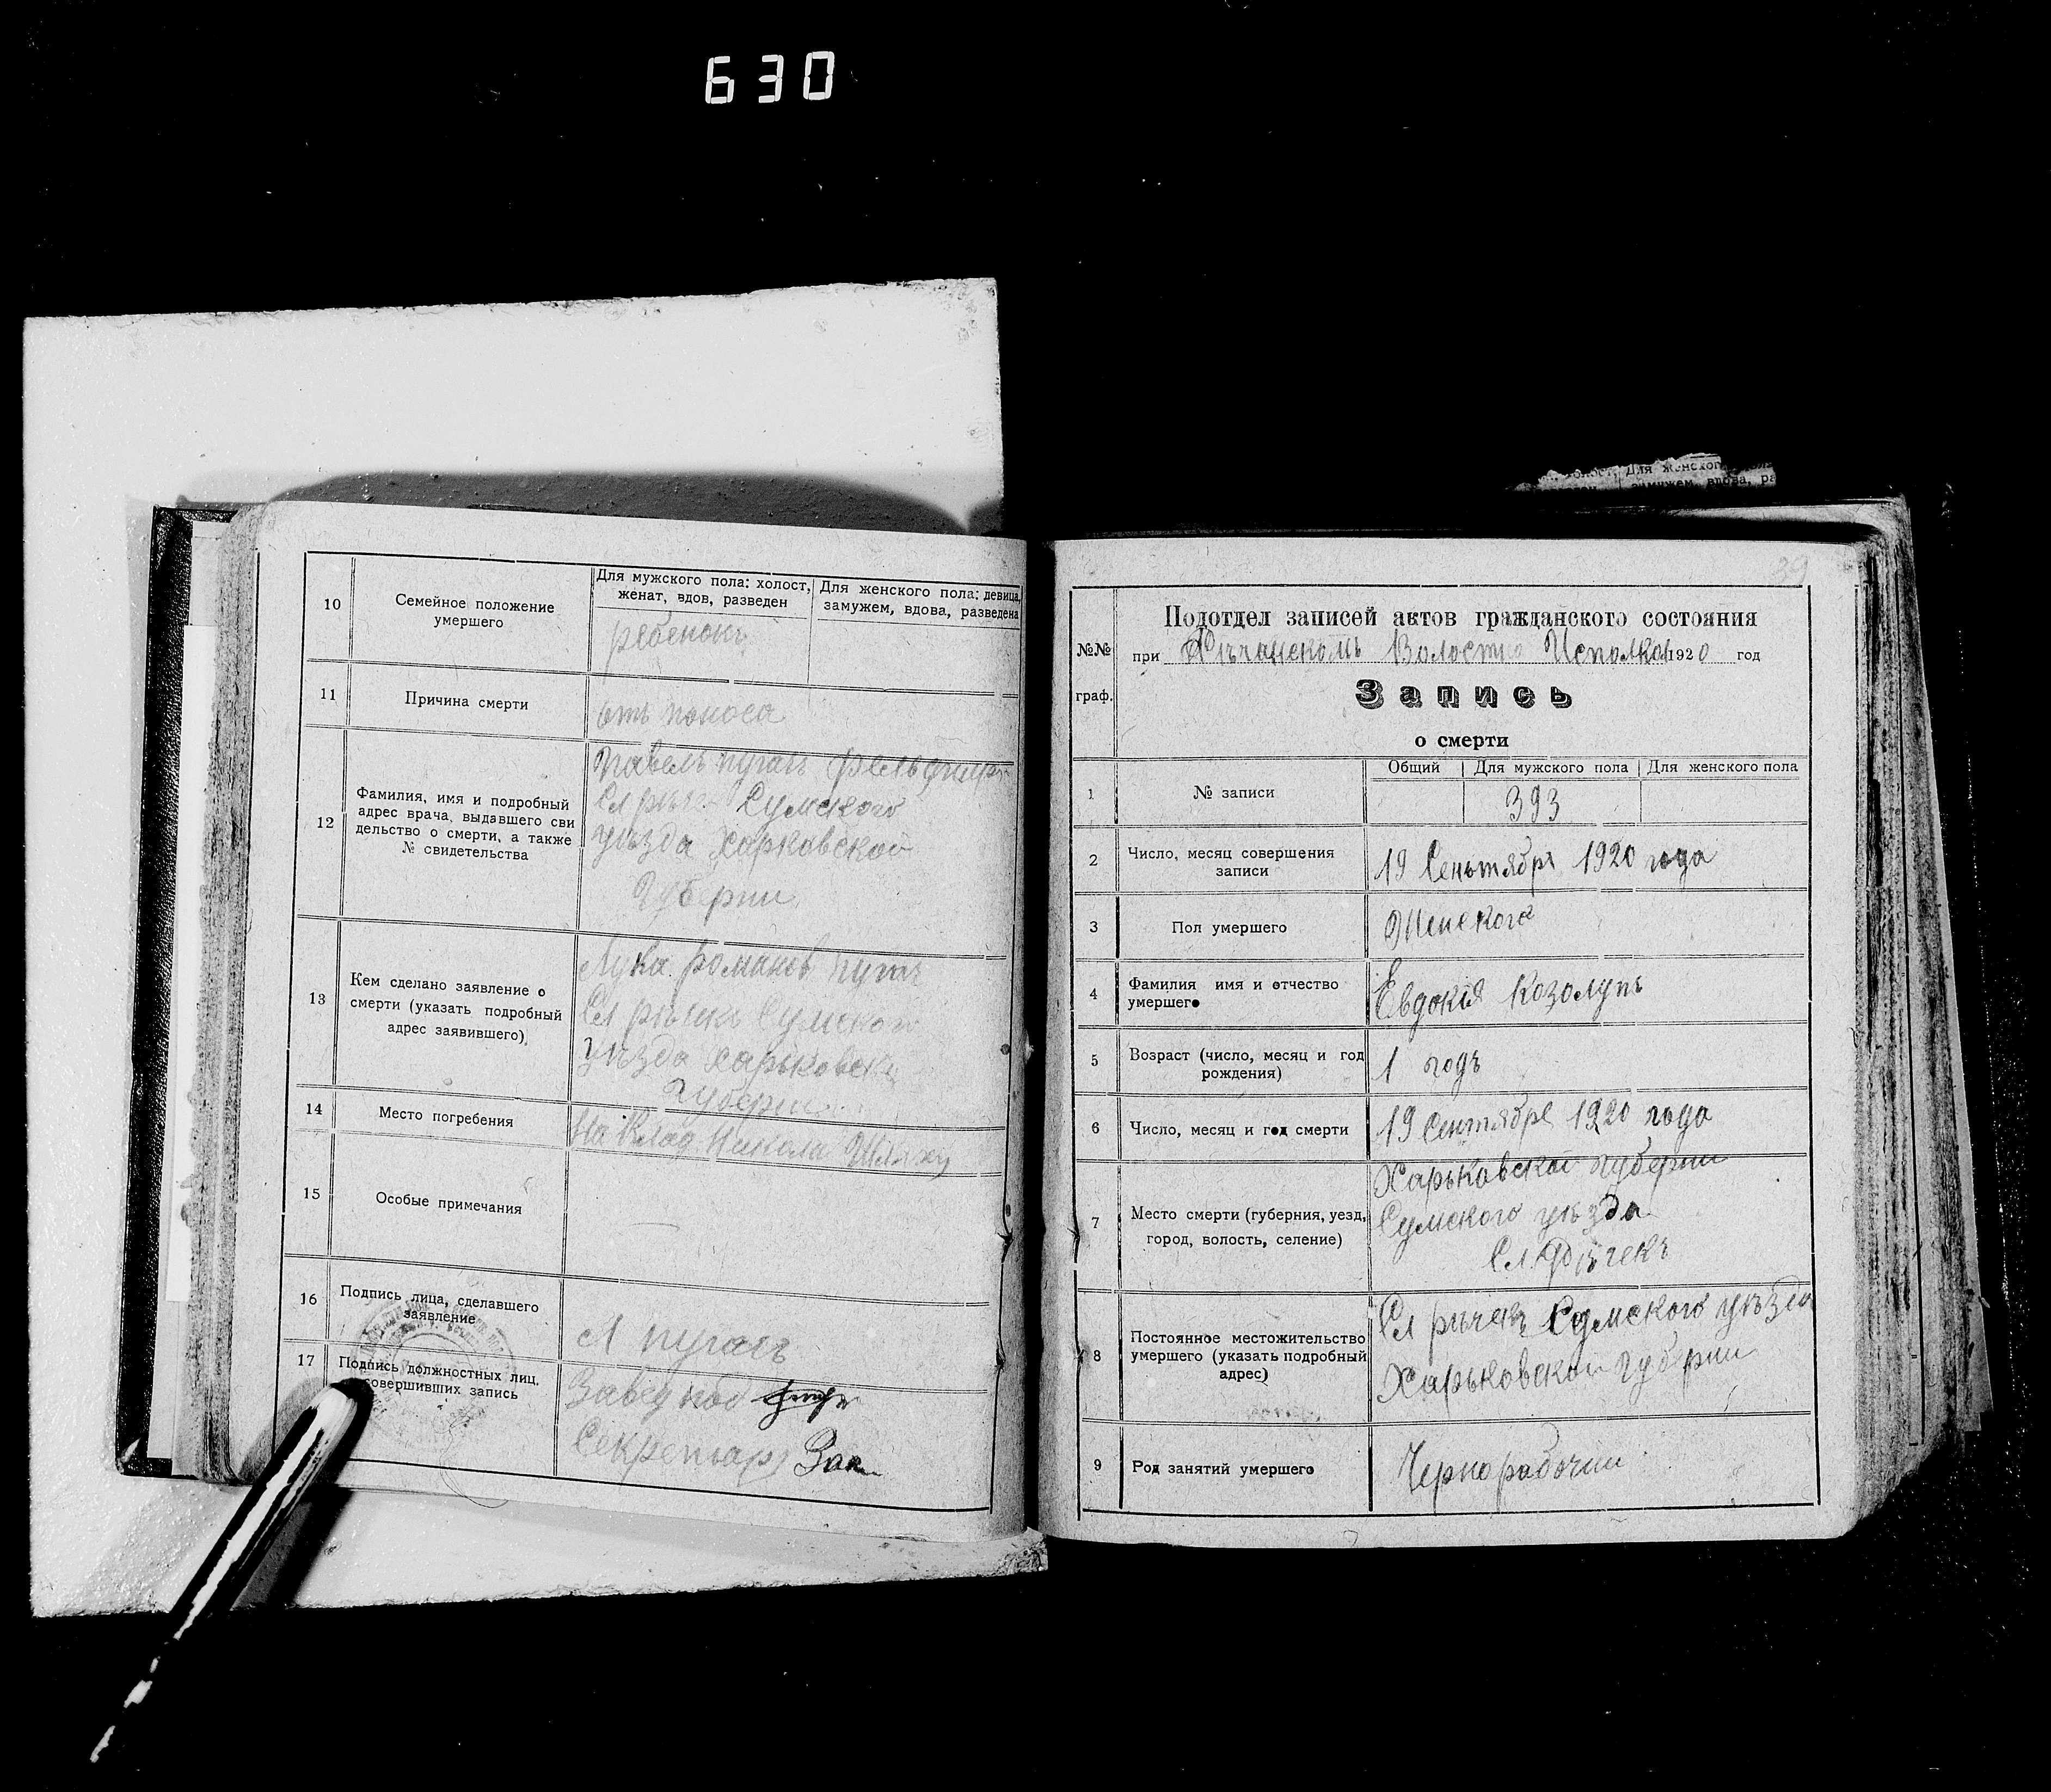 630
Для женского
замужем, вдова, ра
10
Семейное положение
умершего
Для мужского пола: холост,
женат, вдов, разведен
Для женского пола: девица,
замужем, вдова, разведена
ребенокъ
11
Причина смерти
отъ поноса
12
Фамилия, имя и подробный
адрес врача, выдавшего сви
дельство о смерти, а также
№ свидетельства
Павелъ Пугачъ фельдшеръ
Сл Сумского
уѣзда Харковской
Губерни
13
Кем сделано заявление о
смерти (указать подробный
адрес заявившего)
Лука Романов Пугач
Сл рѣчкъ Сумского
уѣзда Харьковской
Губерни
14
Место погребения
На Клад
15
Особые примечания
16
Подпись лица, сделавшего
заявление
Л Пугачъ
17
Подпись должностных лиц,
совершивших запись
Завед под
Секретарь
39
№№
граф.
Подотдел записей актов гражданского состояния
при Рѣчанскомъ Волостно Исполком 1920 год
Запись
о смерти
1
№ записи
Общий
Для мужского пола
Для женского пола
393
2
Число, месяц совершения
записи
19 Сеньтября 1920 года
3
Пол умершего
Женского
4
Фамилия имя и отчество
умершего
Евдокія Козолупъ
5
Возраст (число, месяц и год
рождения)
1 годъ
6
Число, месяц и год смерти
19 Сентябре 1920 года
7
Место смерти (губерния, уезд,
город, волость, селение)
Харьковской губерни
Сумского уѣзда
Сл. Рѣчекъ
8
Постоянное местожительство
умершего (указать подробный
адрес)
Сл рѣчекъ Сумского уѣзда
Харьковской губерни
9
Род занятий умершего
Чернорабочии